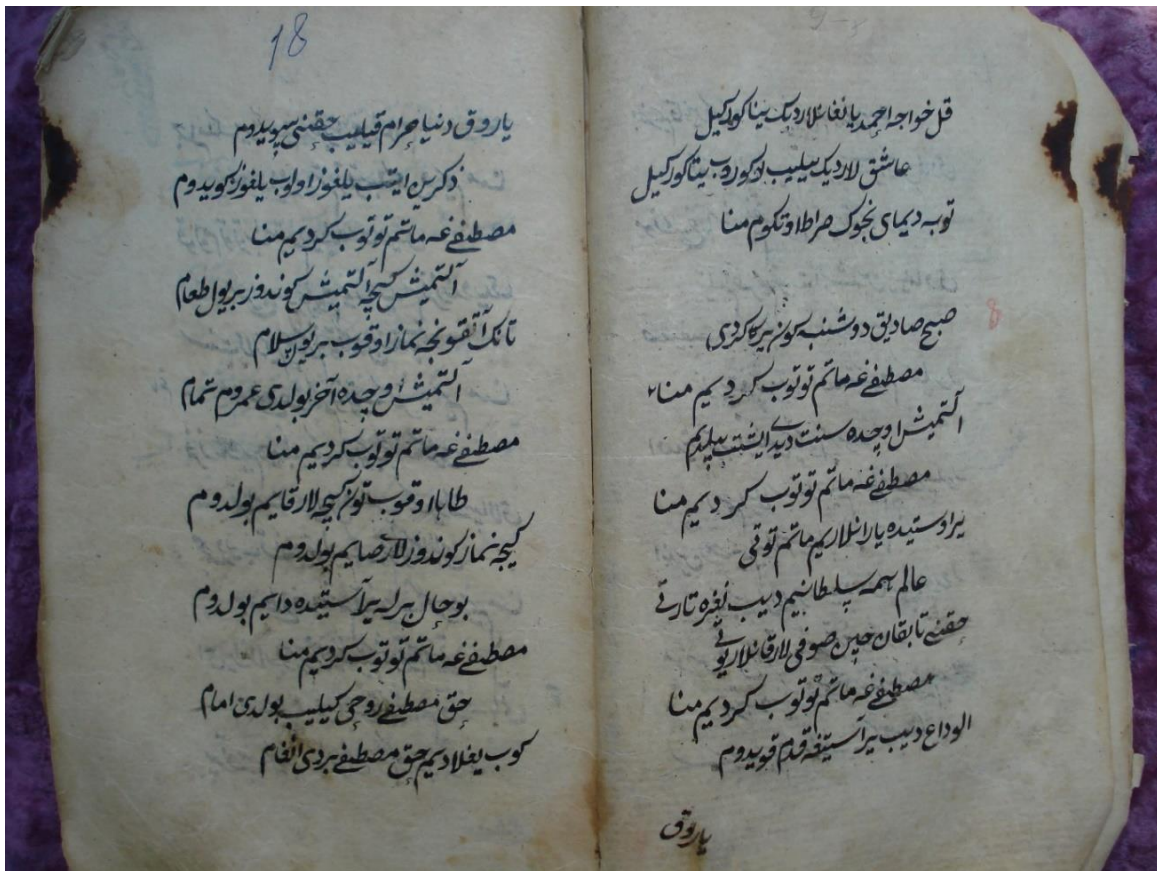 قل خواجه احمد یانغانلاردیک یینا کورکیل
عاشق لاردیک بیلیب لوکوروب ییتا کورکیل
توبه دیمای نجوک صراط اوتکوم منا
8
صبح صادیق دوشنبه کون یرکا کردی
مصطفی غه ماتم توتوب کردیم منا
آلتمیش اوچده سنت دیدی ایشتیب بیلدیم
مصطفی غه ماتم توتوب کردیم منا
یراوستیده یارانلاریم ماتم توتی
عالم همه سلطانیم دیب نغره تارتی
حقنی تابقان چین صوفی لار قانلار یوتی
مصطفی غه ماتم توتوب کردیم منا
الوداع دیب یرآستیغه قدم قویدوم
یاروق
18
یاروق دنیا حرام قیلیب حقنی سویدوم
ذکرین ایتیب یلغوز اولوب یلغوز کویدوم
مصطفی غه ماتم توتوب کردیم منا
آلتمیش کیچه آلتمیش کوندوز بریول طعام
تانک آتقونجه نماز اوقوب بریول سلام
آلتمیش اوچده آخر بولدی عمروم تمام
مصطفی غه ماتم توتوب کردیم منا
طابا اوقوب تون کیچه لار قایم بولدوم
کیچه نماز کوندوزلار صایم بولدوم
بوحال برله یرآستیده دایم بولدوم
مصطفی غه ماتم توتوب کردیم منا
حق مصطفی روحی کیلیب بولدی امام
کوب یغلادیم حق مصطفی بردی انغام